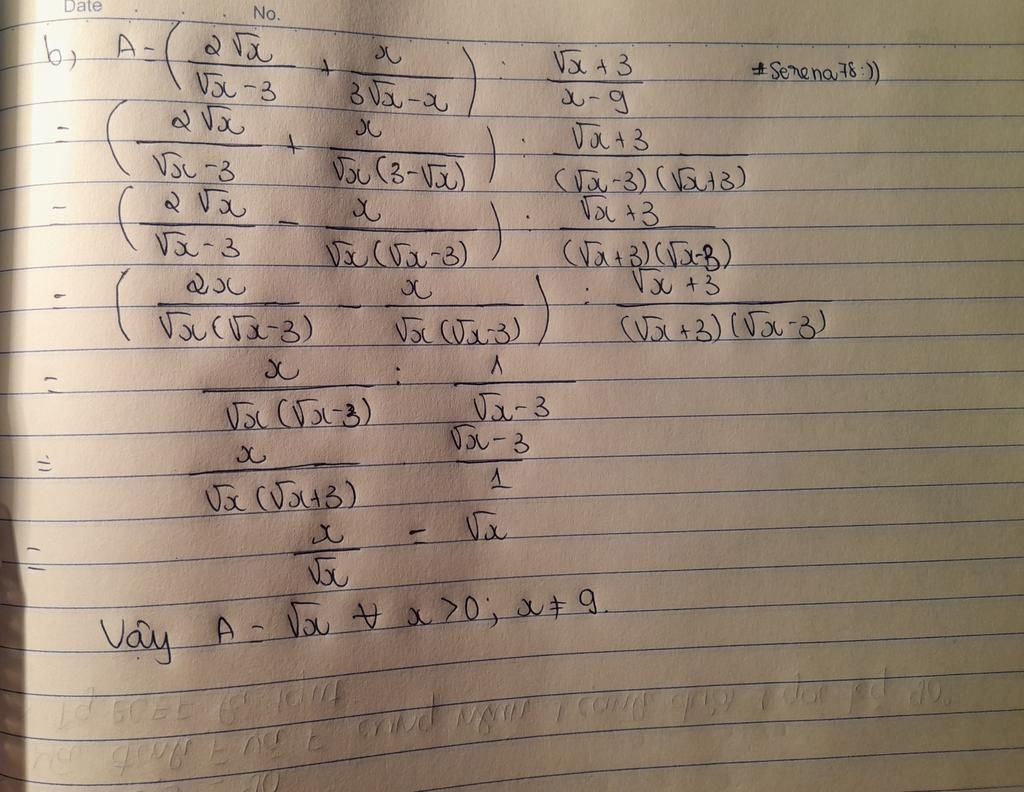 Date No.
b) A = ( 2√x / (√x - 3) + x / (3√x - x) ) : (√x + 3) / (x - 9) #Serena78:))
= ( 2√x / (√x - 3) + x / (√x(3 - √x)) ) : (√x + 3) / ((√x - 3)(√x + 3))
= ( 2√x / (√x - 3) - x / (√x(√x - 3)) ) : (√x + 3) / ((√x + 3)(√x - 3))
= ( 2x / (√x(√x - 3)) - x / (√x(√x - 3)) ) : (√x + 3) / ((√x + 3)(√x - 3))
= x / (√x(√x - 3)) : 1 / (√x - 3)
= x / (√x(√x + 3)) . (√x - 3) / 1
= x / √x = √x
Vậy A = √x ∀ x > 0; x ≠ 9.